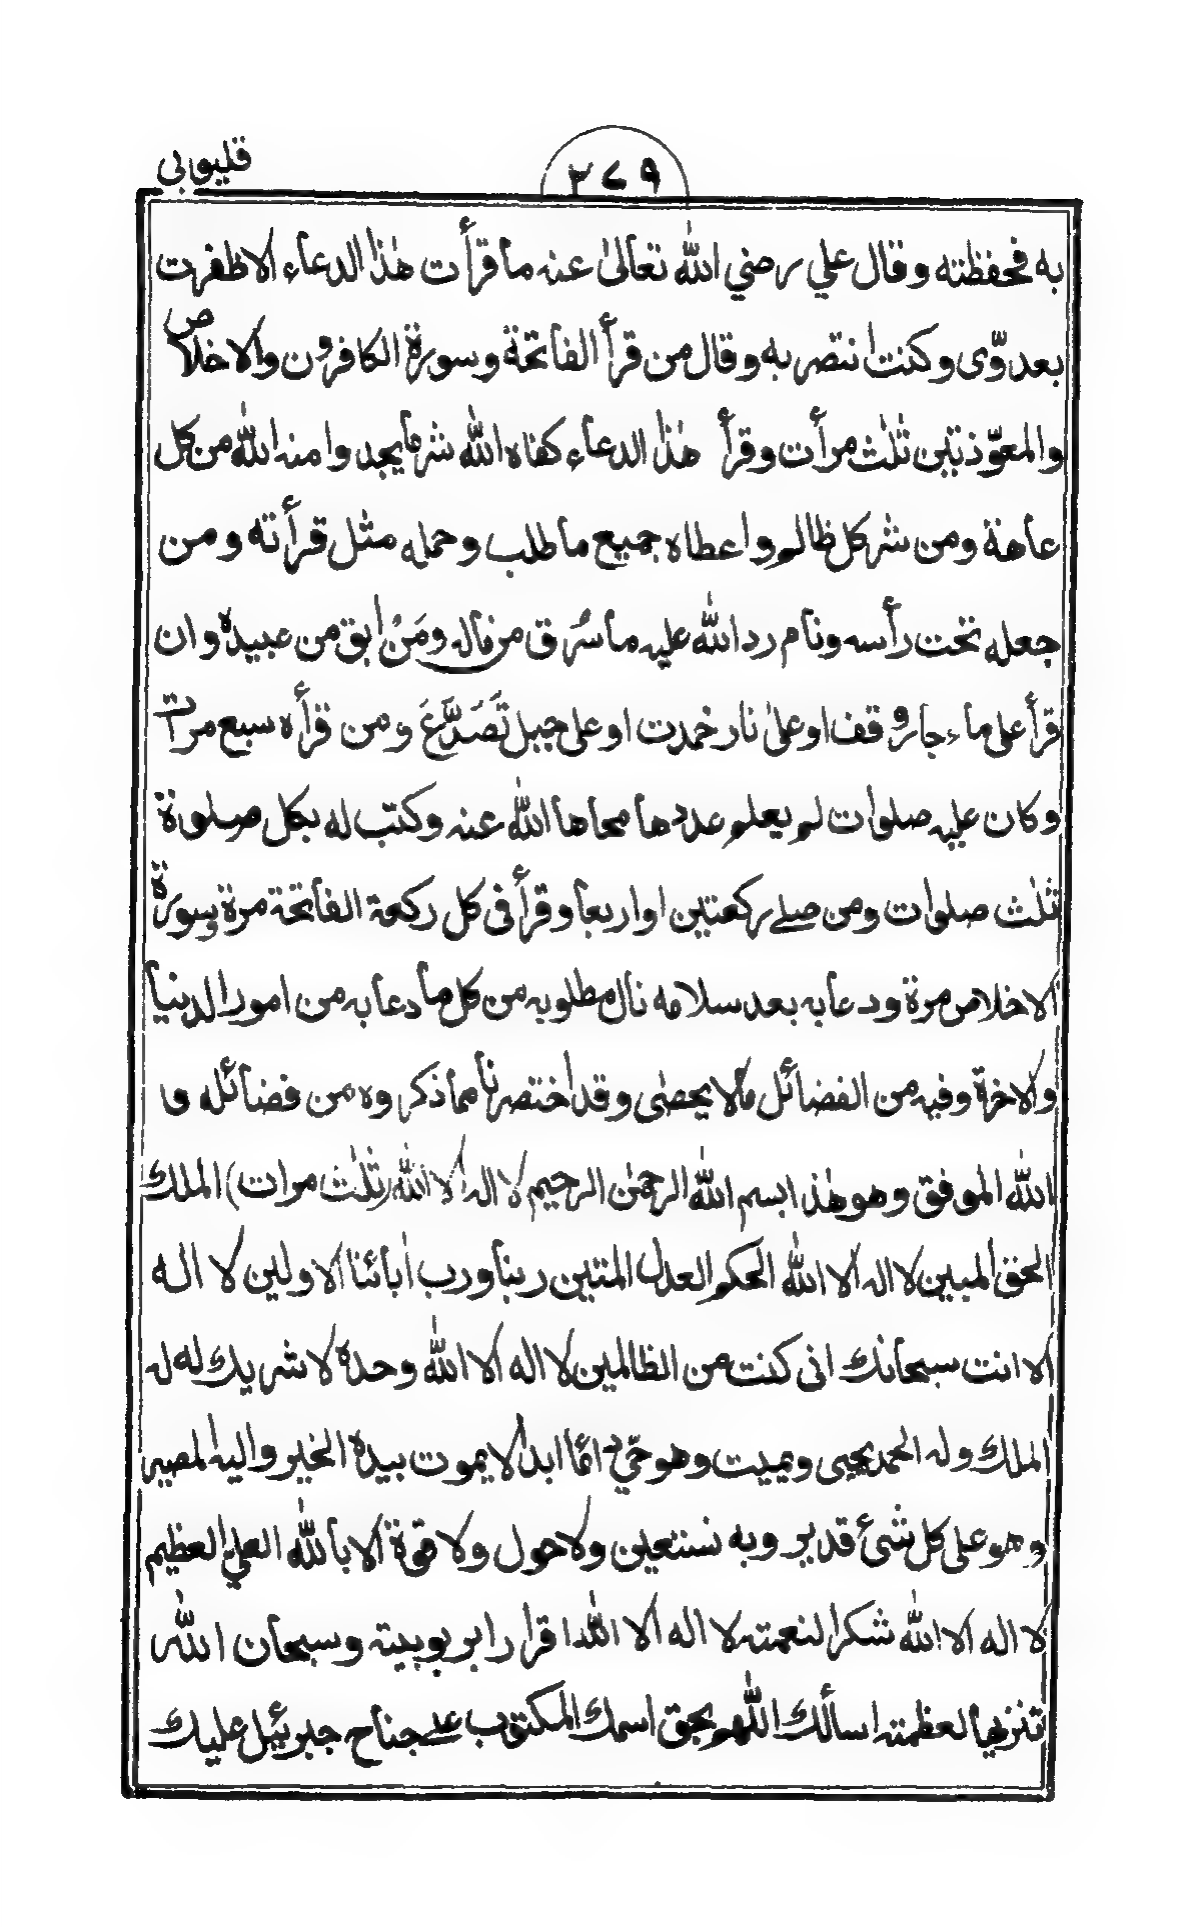 قليوبى
٢٧٩
به فحفظته وقال علي رضي الله تعالىٰ عنه ما قرأت هٰذا الدعاء الا ظفرت
بعدوّى وكنت انتصر به وقال من قرأ الفاتحة وسورة الكافرون والاخلاص
والمعوّذتين ثلٰث مرأت وقرأ هٰذا الدعاء كفاه الله شر ما يجد وامنه الله من كل
عاهة ومن شر كل ظالم واعطاه جميع ما طلب وحمله مثل قرأته ومن
جعله تحت رأسه ونام رد الله عليه ما سُرق من ماله ومَنْ ابق من عبيده وان
قرأ على ماء جار وقف او علىٰ نار خمدت او على جبل تَصَدَّعَ ومن قرأه سبع مرات
وكان عليه صلوات لم يعلم عددها محاها الله عنه وكتب له بكل صلوة
ثلٰث صلوات ومن صلے ركعتين او اربعا وقرأ فى كل ركعة الفاتحة مرة وسورة
الاخلاص مرة ودعا به بعد سلامه نال مطلوبه من كل ما دعا به من امور الدنيا
والاخرة وفيه من الفضائل ما لا يحصٰى وقد اختصرنا مما ذكروه من فضائله و
الله الموفق وهو هٰذا بسم الله الرحمٰن الرحيم لا اله الا الله (ثلٰث مرات) الملك
الحق المبين لا اله الا الله الحكم العدل المتين ربنا ورب أبائنا الاولين لا اله
الا انت سبحانك انى كنت من الظالمين لا اله الا الله وحده لا شريك له له
الملك وله الحمد يحيى ويميت وهو حيّ دائما ابدا لا يموت بيده الخير واليه المصير
وهو على كل شئ قدير وبه نستعين ولا حول ولا قوة الا بالله العلي العظيم
لا اله الا الله شكرا لنعمته لا اله الا الله اقرارا بربوبيته وسبحان الله
تنزيها لعظمته اسالك اللهم بحق اسمك المكتوب علے جناح جبرئيل عليك